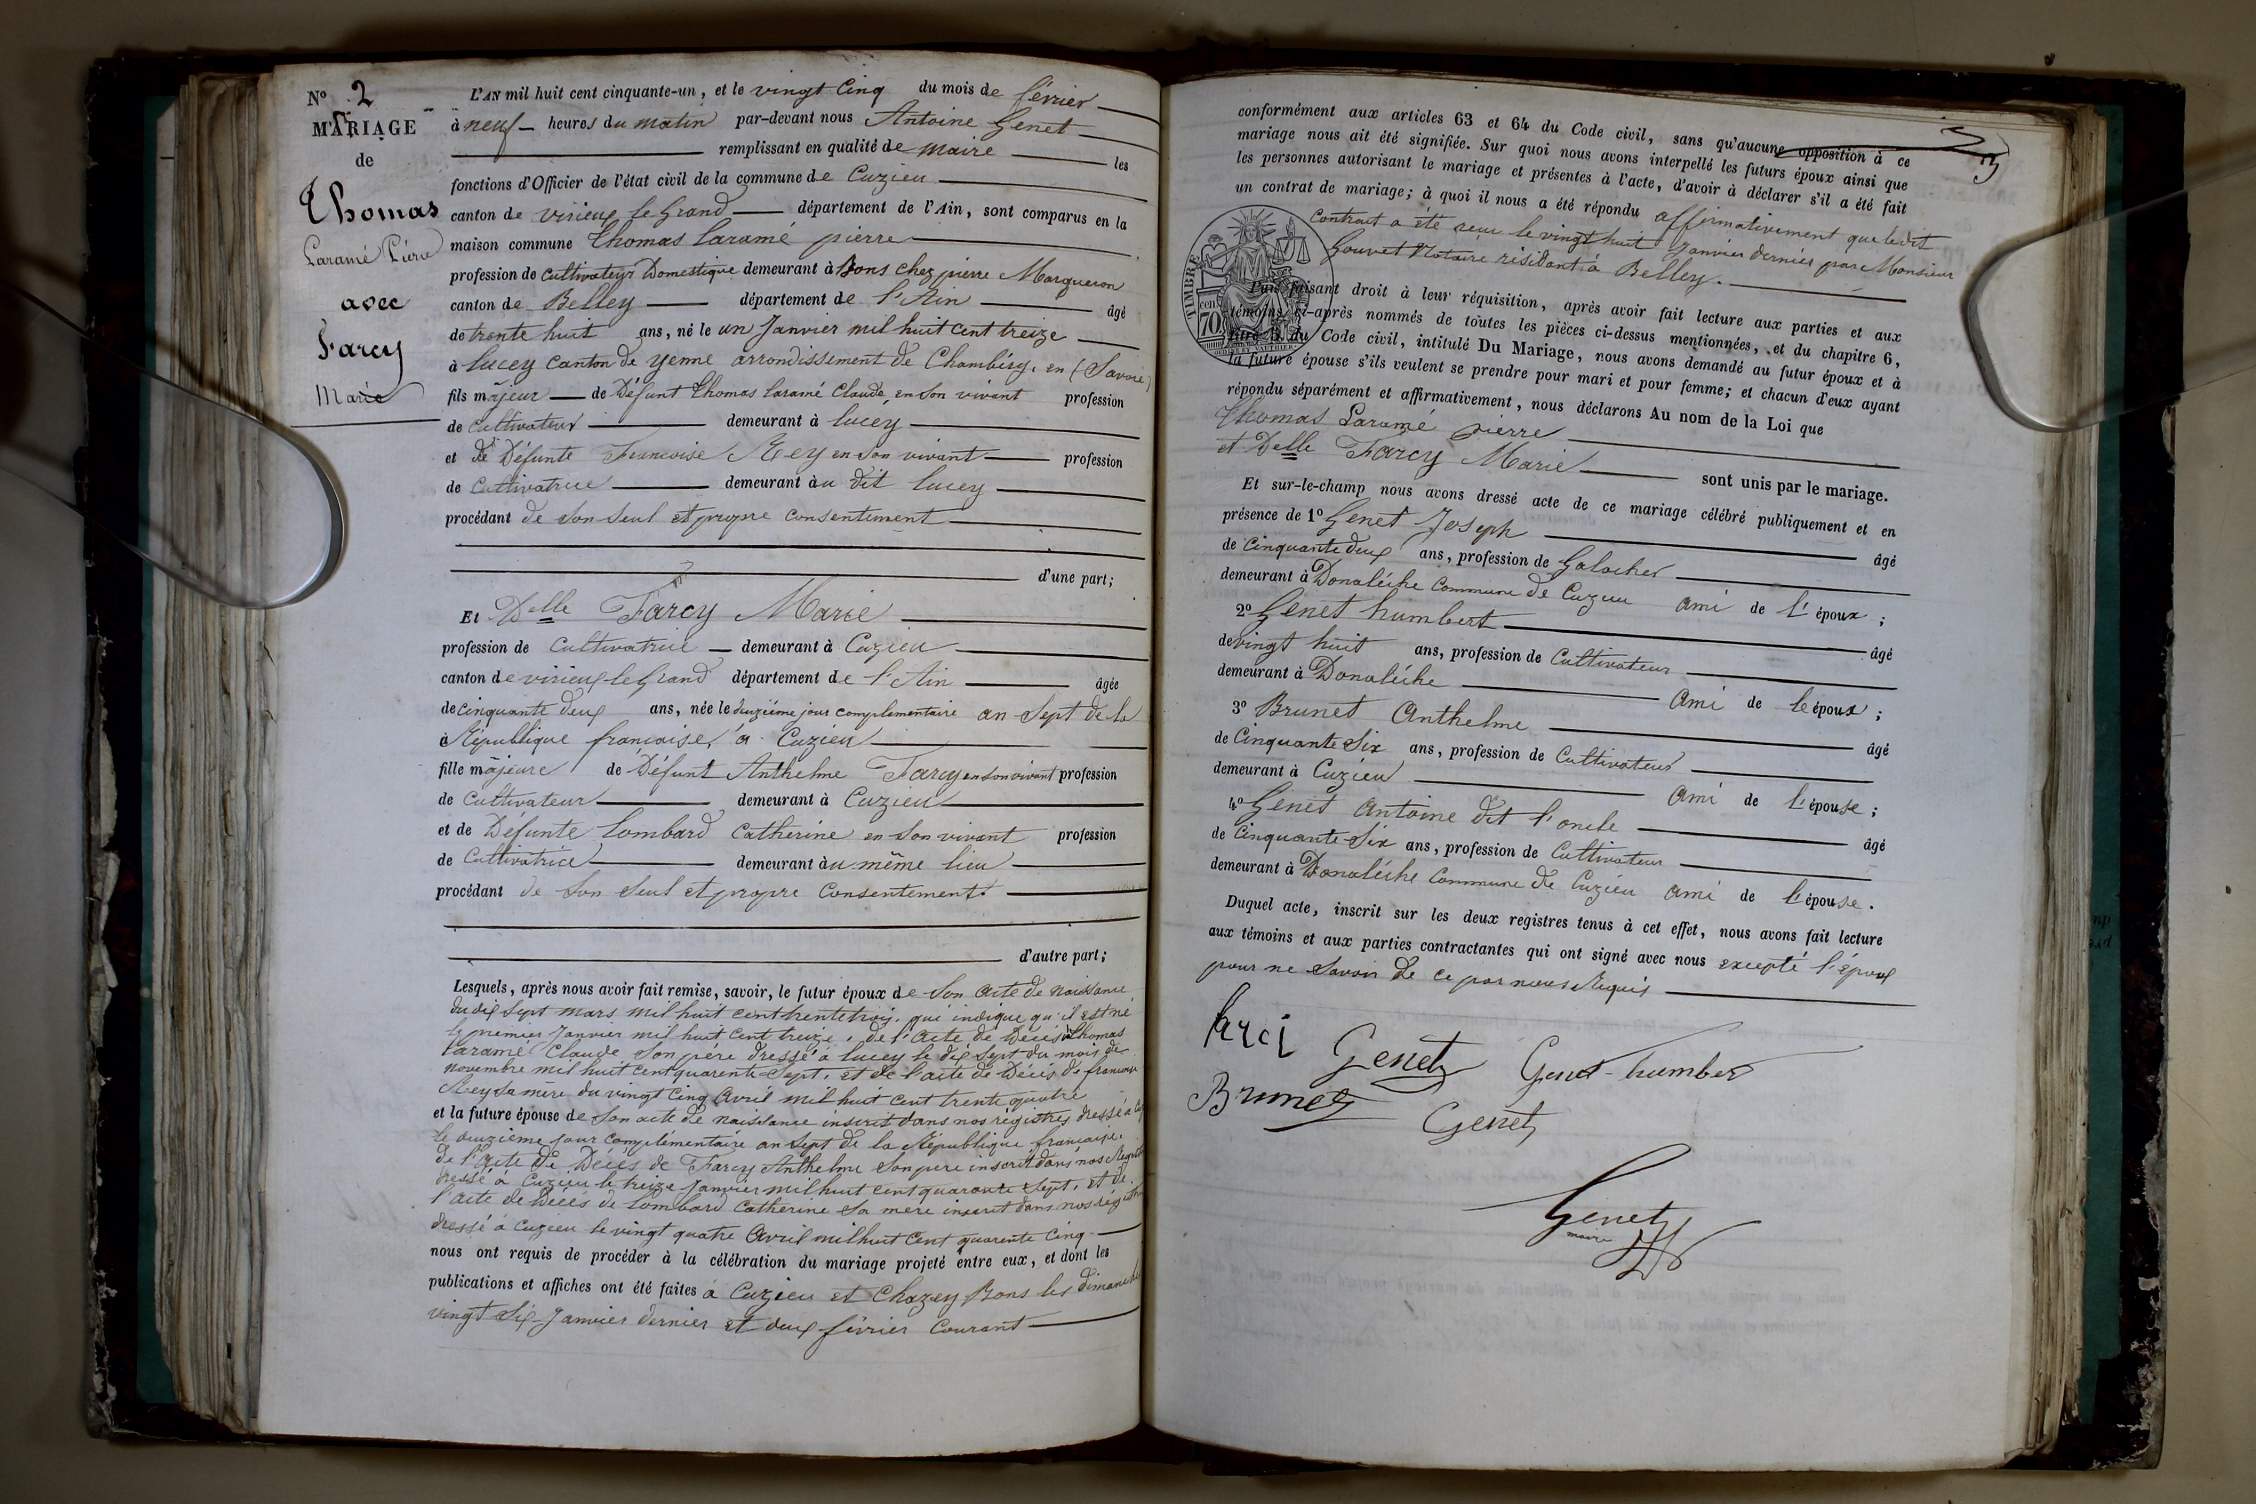 N° 2
MARIAGE
de
Thomas
Laramé Piérre
avec
Farcy
Marie
L'AN mil huit cent cinquante-un, et le vingt Cinq du mois de février
à neuf heures du matin par-devant nous Antoine Genet
remplissant en qualité de maire les
fonctions d'Officier de l'état civil de la commune de Cuzieu
canton de virieux le Grand département de l'Ain, sont comparus en la
maison commune Thomas Laramé pierre
profession de Cultivateur Domestique demeurant à Bons chez pierre Margueron
canton de Belley département de l'Ain âgé
de trente huit ans, né le un Janvier mil huit cent treize
à lucey Canton de yenne arrondissement de Chambéry, en (Savoie)
fils majeur de Défunt Thomas Laramé Claude, en son vivant profession
de Cultivateur demeurant à lucéy
et de Défunte Francoise Rey en son vivant profession
de Cultivatrice demeurant àu dit lucey
procédant de son seul et propre Consentement
d'une part;
Et Delle Farcy Marie
profession de Cultivatrice demeurant à Cuzieu
canton de virieux-le Grand département de l'Ain âgée
de cinquante deux ans, née le deuxiéme jour complementaire an Sept de la
à République francaise, à Cuzieu
fille majeure de Défunt Anthelme Farcy en son vivant profession
de Cultivateur demeurant à Cuzieu
et de Défunte Lombard Catherine en son vivant profession
de Cultivatrice demeurant àu même lieu
procédant de son seul et propre Consentement.
d'autre part;
Lesquels, après nous avoir fait remise, savoir, le futur époux de son acte de naissance
du dix sept mars mil huit cent trente trois, qui indique qu'il est né
le premier Janvier mil huit Cent treize, de l'acte de Décès de Thomas
Laramé Claude son père dressé à lucey le dix sept du mois de
novembre mil huit cent quarente-Sept, et de l'acte de Décès de francoise
Rey sa mère du vingt Cinq Avril mil huit cent trente quatre
et la future épouse de son acte de naissance inscrit dans nos régistres dressé à
le deuxieme jour Complémentaire an Sept de la République francaise,
de l'acte de Décès de Farcy Anthelme son pere inscrit dans nos
dressé à Cuzieu le treize Janvier mil huit cent quarante Sept, et de
l'acte de Décès de Lombard Catherine Sa mere inscrit dans nos régistres
dressé à Cuzieu le vingt quatre Avril mil huit Cent quarente Cinq
nous ont requis de procéder à la célébration du mariage projeté entre eux, et dont les
publications et affiches ont été faites à Cuzieu et Chazey Bons les dimanches
vingt Six Janvier dernier et deux février Courant
conformément aux articles 63 et 64 du Code civil, sans qu'aucune opposition à ce
mariage nous ait été signifiée. Sur quoi nous avons interpellé les futurs époux ainsi que
les personnes autorisant le mariage et présentes à l'acte, d'avoir à déclarer s'il a été fait
un contrat de mariage; à quoi il nous a été répondu affirmativement que ledit
Contrat a été recu le vingt huit Janvier dernier par Monsieur
Gouvet Notaire résidant à Belley.
TIMBRE
70 cen
Puis faisant droit à leur réquisition, après avoir fait lecture aux parties et aux
témoins ci-après nommés de toutes les pièces ci-dessus mentionnées, et du chapitre 6,
titre 5 du Code civil, intitulé Du Mariage, nous avons demandé au futur époux et à
la future épouse s'ils veulent se prendre pour mari et pour femme; et chacun d'eux ayant
répondu séparément et affirmativement, nous déclarons Au nom de la Loi que
Thomas Laramé pierre
et Delle Farcy Marie sont unis par le mariage.
Et sur-le-champ nous avons dressé acte de ce mariage célébré publiquement et en
présence de 1° Genet Joseph âgé
de Cinquante deux ans, profession de Galocher
demeurant à Donaléche Commune de Cuzieu ami de l'époux;
2° Genet humbert âgé
de vingt huit ans, profession de Cultivateur
demeurant à Donaléche Ami de l'époux;
3° Brunet Anthelme âgé
de Cinquante Six ans, profession de Cultivateur
demeurant à Cuzieu Ami de l'épouse;
4° Genet Antoine dit l'oncle âgé
de Cinquante Six ans, profession de Cultivateur
demeurant à Donaléche Commune de Cuzieu ami de l'épouse.
Duquel acte, inscrit sur les deux registres tenus à cet effet, nous avons fait lecture
aux témoins et aux parties contractantes qui ont signé avec nous excepté l'époux
pour ne savoir de ce par nous Requis
farci Genet Genet humber
Brunet Genet
Genet
maire